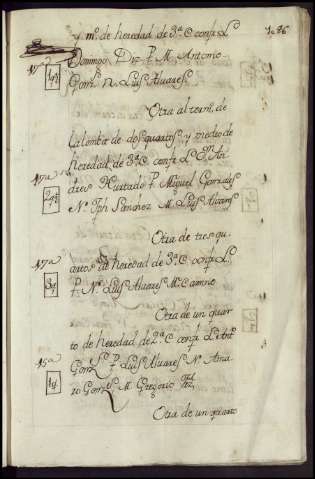 y mº de heredad de 3ª C confi Lº
Domingo Diz P. M. Antonio
Gonz N. Luis Alvares
Otra al term. de
la lomba de dos quartos y medio de
heredad de 3ª C confi Lº An
dres Hurtado P. Miguel Gonzales
Nº Jph Ximenez M. Luis Alvares
Otra de tres qu
artos de heredad de 3ª C confi Lº
P. Nº Luis Alvares Mº Camino
Otra de un quar
to de heredad de 2ª C confi Lº Antº
Gonz P. Luis Alvares Nº Ama
ro Gonz M. Gregorio
Otra de un quarto